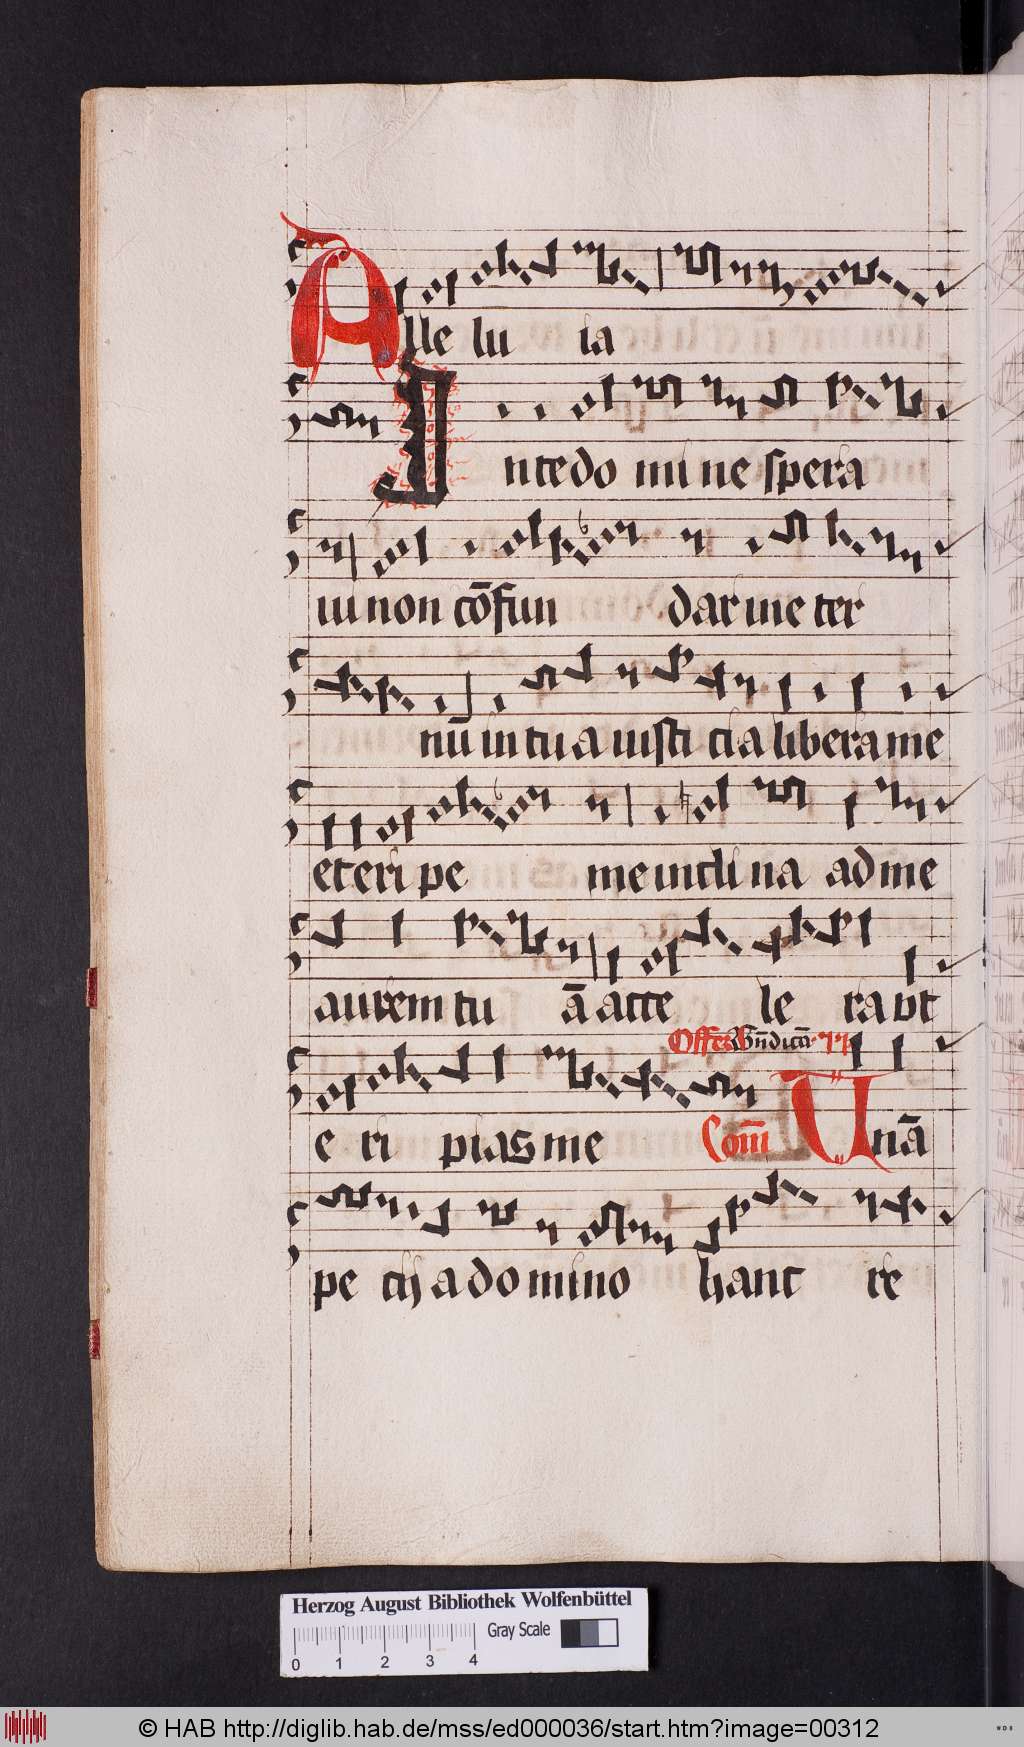 Alle lu ia
In te do mi ne spera
ui non cōfun dar in e ter
nū in tu a iusti cia libera me
et eri pe me incli na ad me
aurem tu ā acce le ra vt
Offer Bn̄dicā
e ri pias me Com̄ Unā
pe cij a do mino hanc re
Herzog August Bibliothek Wolfenbüttel
Gray Scale
0 1 2 3 4
© HAB http://diglib.hab.de/mss/ed000036/start.htm?image=00312